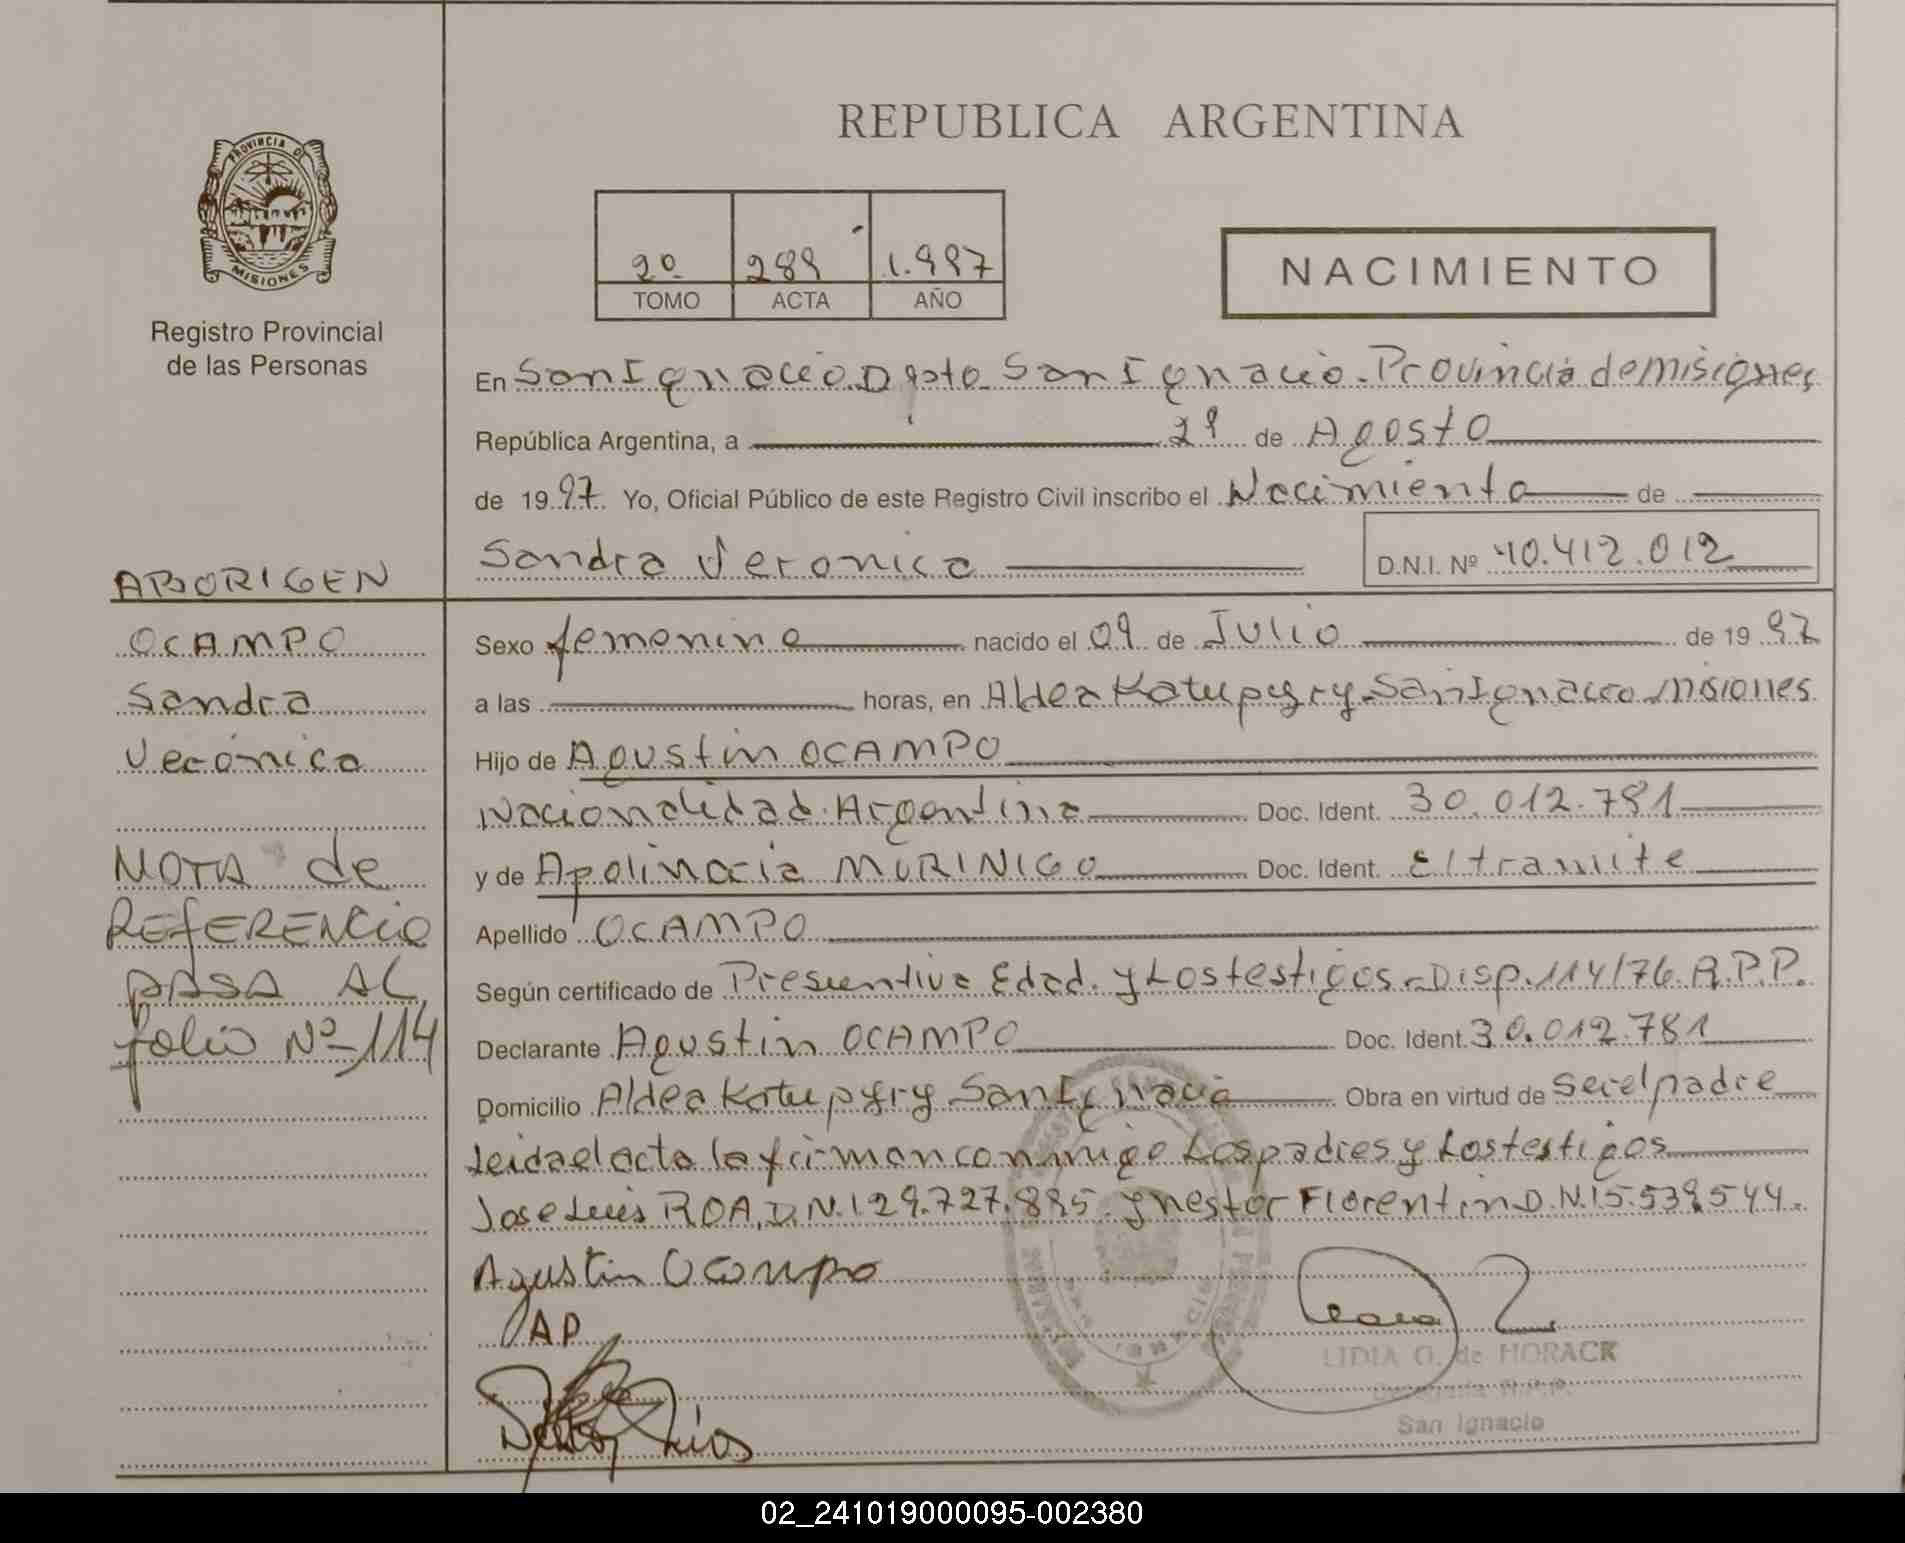 REPUBLICA ARGENTINA
PROVINCIA DE
MISIONES
Registro Provincial
de las Personas
2º 289 1.997
TOMO ACTA AÑO
NACIMIENTO
En San Ignacio Dpto San Ignacio. Provincia de misiones
República Argentina, a 29 de Agosto
de 1997 Yo, Oficial Público de este Registro Civil inscribo el Nacimiento de
Sandra Veronica D.N.I. Nº 40.412.012
ABORIGEN
OCAMPO
Sandra
Verónica
NOTA de
REFERENCIA
PASA AL
folio Nº 114
Sexo femenino nacido el 09 de Julio de 1997
a las horas, en Aldea Katupyry San Ignacio Misiones
Hijo de Agustin OCAMPO
Nacionalidad Argentina Doc. Ident. 30.012.781
y de Apolinaria MURINIGO Doc. Ident. E/tramite
Apellido OCAMPO
Según certificado de Presuntiva Edad. y Los testigos - Disp. 114/76 R.P.P.
Declarante Agustin OCAMPO Doc. Ident. 30.012.781
Domicilio Aldea Katupyry San Ignacio Obra en virtud de Ser el padre
Leida el acta la firman conmigo Los padres y Los testigos
Jose Luis ROA, D.N.I 29.727.895. y Nestor Florentin D.N.I 5.539.544.
Agustin Ocampo
AP
LIDIA G. de HORACK
San Ignacio
02_241019000095-002380